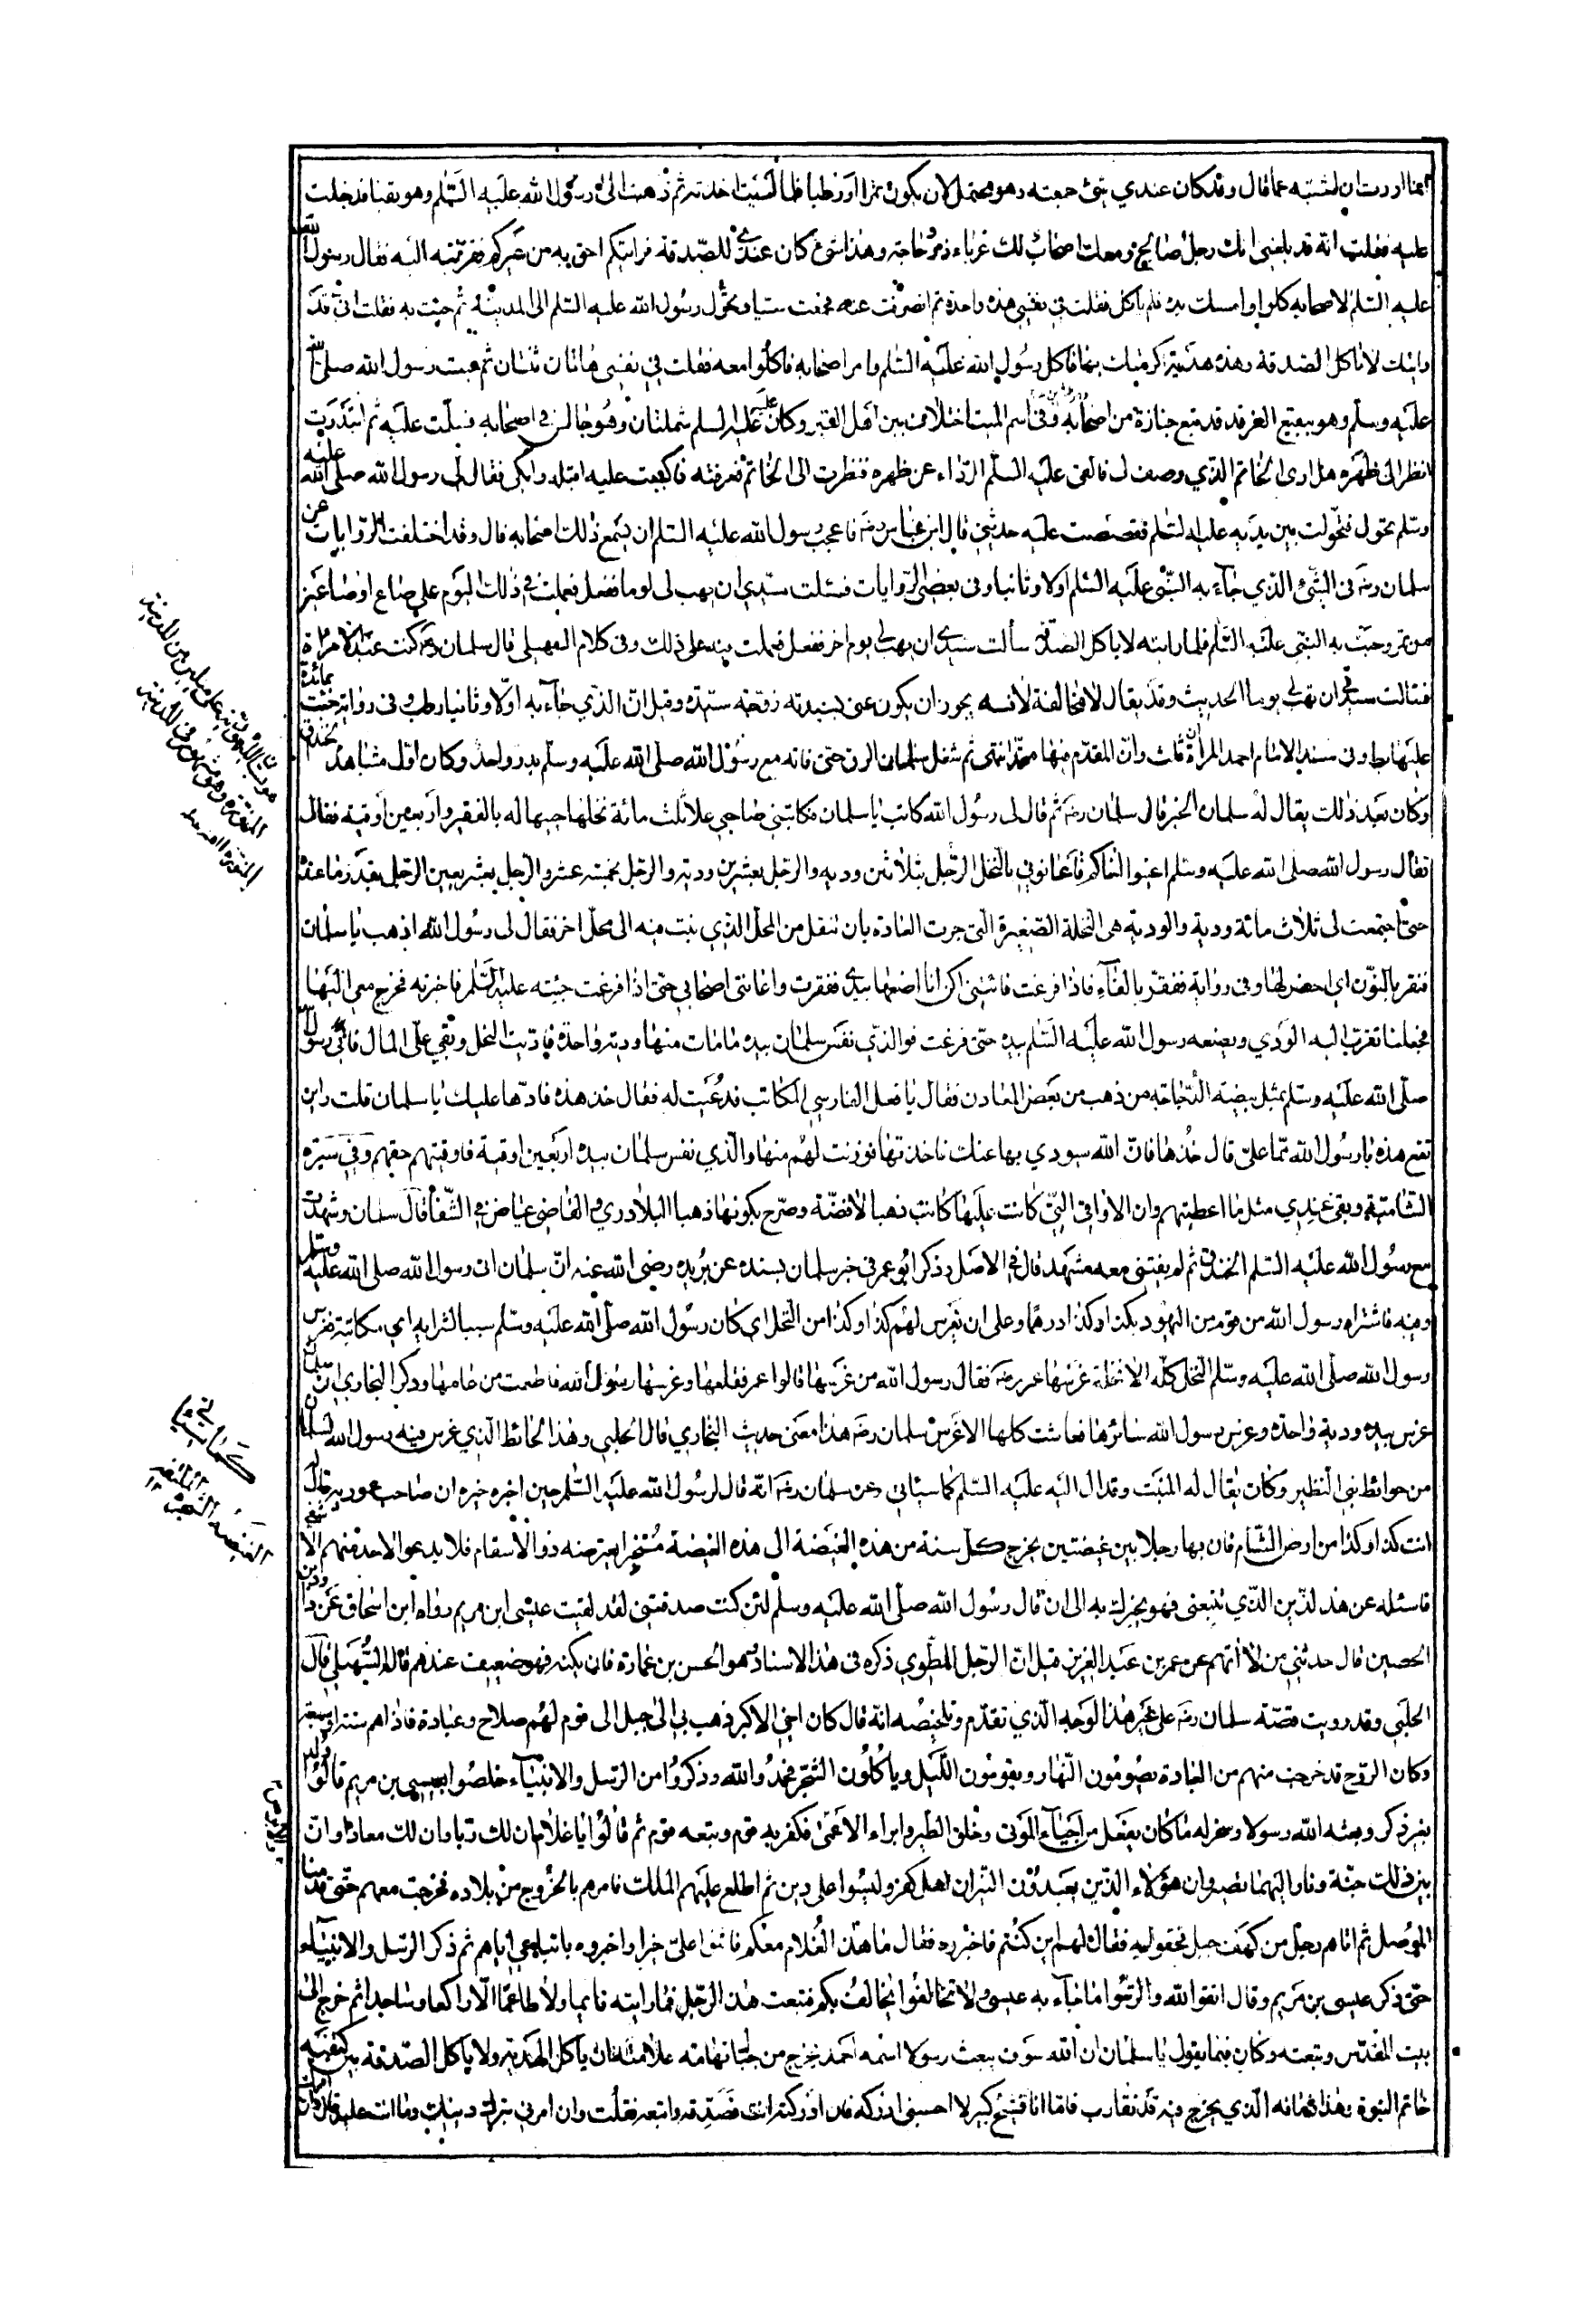 انما اردت ان استثبته عما قال وقد كان عندي شئ جمعته وهو محتمل لان يكون تمرا او رطبا فلما امسيت اخذته ثم ذهبت الى رسول الله عليه السلم وهو بقبا فدخلت
عليه فقلت انه قد بلغني انك رجل صالح ومعك اصحاب لك غرباء ذوو حاجة وهذا شئ كان عندي للصدقة فرايتكم احق به من غيركم فقربته اليه فقال رسول الله
عليه السلم لاصحابه كلوا وامسك يده فلم ياكل فقلت في نفسي هذه واحدة ثم انصرفت عنه فجمعت شيئا وتحول رسول الله عليه السلم الى المدينة ثم جئت به فقلت اني قد
رايتك لا تاكل الصدقة وهذه هدية اكرمتك بها فاكل رسول الله عليه السلم وامر اصحابه فاكلوا معه فقلت في نفسي هاتان ثنتان ثم جئت رسول الله صلى الله
عليه وسلم وهو ببقيع الغرقد قد تبع جنازة من اصحابه وفي اسم الميت اختلاف بين اهل القبر وكان عليه السلم شملتان وهو جالس في اصحابه فسلمت عليه ثم ابتدرت
انظر الى ظهره هل ارى الخاتم الذي وصف لي فالقى عليه السلم الرداء عن ظهره فنظرت الى الخاتم فعرفته فاكببت عليه اقبله وابكي فقال لي رسول الله صلى الله عليه
وسلم تحول فتحولت بين يديه عليه السلم فقصصت عليه حديثي قال ابن عباس رضه فاعجب رسول الله عليه السلم ان يسمع ذلك اصحابه قال وقد اختلفت الروايات عن
سلمان رضه في الشئ الذي جاء به النبي عليه السلم اولا وثانيا وفي بعض الروايات فسئلت سيدي ان يهب لي يوما ففعل فعملت في ذلك اليوم على صاع او صاعين
من تمر وجئت به النبي عليه السلم فلما رايته لا ياكل الصدقة سألت سيدي ان يهب لي يوم اخر ففعل فعملت فيه على ذلك وفي كلام السهيلي قال سلمان رضه كنت عبدا لامراة
فسالت سيدتي ان تهب لي يوما الحديث وقد يقال لا مخالفة لانه يجوز ان يكون عنى بسيدته زوجة سيده وقيل ان الذي جاء به اولا وثانيا رطب وفي رواية جئت بمائدة
عليها بط وفي مسند الامام احمد المراة ثلث وان المقدم منها تمر انتهى ثم شغل سلمان الرق حتى فاته مع رسول الله صلى الله عليه وسلم بدر واحد وكان اول مشاهده الخندق
وكان بعد ذلك يقال له سلمان الخير قال سلمان رضه ثم قال لي رسول الله كاتب يا سلمان فكاتبني صاحبي على ثلث مائة نخلة احييها له بالفقير واربعين اوقية فقال
فقال رسول الله صلى الله عليه وسلم اعينوا اخاكم فاعانوني بالنخل الرجل بثلاثين ودية والرجل بعشرين ودية والرجل بخمسة عشر والرجل بعشر يعين الرجل بقدر ما عنده
حتى اجتمعت لي ثلاث مائة ودية والودية هي النخلة الصغيرة التي جرت العادة بان تنقل من المحل الذي نبت فيه الى محل اخر فقال لي رسول الله اذهب يا سلمان
فنقر بالنون اي احضر لها وفي رواية ففقر بالفاء فاذا فرغت فائتني اكن انا اضعها بيدي ففقرت واعانني اصحابي حتى اذا فرغت جئته عليه السلم فاخبرته فخرج معي اليها
فجعلنا نقرب اليه الودي ويضعه رسول الله عليه السلم بيده حتى فرغت فوالذي نفس سلمان بيده ما مات منها ودية واحدة فاديت النخل وبقي على المال فاتي رسول الله
صلى الله عليه وسلم بمثل بيضة الدجاجة من ذهب من بعض المعادن فقال ما فعل الفارسي المكاتب فدعيت له فقال خذ هذه فادها عليك يا سلمان قلت واين
تقع هذه يا رسول الله مما علي قال خذها فان الله سيودي بها عنك فاخذتها فوزنت لهم منها والذي نفس سلمان بيده اربعين اوقية فاوفيتهم حقهم وفي سيرة
الشامية وبقي عندي مثل ما اعطيتهم وان الاواقي التي كانت عليها كانت ذهبا لا فضة وصرح بكونها ذهبا البلاذري والقاضي عياض في الشفا قال سلمان وشهدت
مع رسول الله عليه السلم الخندق ثم لم يفتني معه مشهد قال في الاصل وذكر ابو عمر في خبر سلمان بسنده عن بريده رضي الله عنه ان سلمان اتى رسول الله صلى الله عليه وسلم
وفيه فاشتراه رسول الله من قوم من اليهود بكذا وكذا درهما وعلى ان يغرس لهم كذا وكذا من النخل اي كان رسول الله صلى الله عليه وسلم سببا لشرايه اي مكاتبة فغرس
رسول الله صلى الله عليه وسلم النخل كله الا نخلة غرسها عمر رضه فقال رسول الله من غرسها قالوا عمر فقلعها وغرسها رسول الله فاطعمت من عامها وذكر البخاري ان سلمان
غرس بيده ودية واحدة وغرس رسول الله سائرها فعاشت كلها الا غرس سلمان رضه هذا معنى حديث البخاري قال الحلبي وهذا الحائط الذي غرس فيه رسول الله لسلمان
من حوائط بني النظير وكان يقال له الميثب وقد ال اليه عليه السلم كما سياتي وعن سلمان رضه انه قال لرسول الله عليه السلم حين اخبره خبره ان صاحب عموريه قال له
ائت كذا وكذا من ارض الشام فان بها رجلا بين غيضتين يخرج كل سنة من هذه الغيضة الى هذه الغيضة مستجيزا يعترضه ذوو الاسقام فلا يدعو لاحد منهم الا شفي
فاسئله عن هذا الدين الذي تبتغي فهو يخبرك به الى ان قال رسول الله صلى الله عليه وسلم لئن كنت صدقتني لقد لقيت عيسى ابن مريم رواه ابن اسحاق عن داود ابن
الحصين قال حدثني من لا اتهم عن عمر بن عبد العزيز قيل ان الرجل المطوي ذكره في هذا الاسناد هو الحسن بن عمارة فان يكنه فهو ضعيف عندهم قاله السهيلي قال
الحلبي وقد رويت قصة سلمان رضه على غير هذا الوجه الذي تقدم وتلخيصه انه قال كان اخي الاكبر ذهب بي الى جبل الى قوم لهم صلاح وعبادة فاذا هم ستة او سبعة
وكان الروح قد خرجت منهم من العبادة يصومون النهار ويقومون الليل وياكلون الشجر فحمدوا الله وذكروا من الرسل والانبياء حتى خلصوا بعيسى بن مريم قالوا ولد
بغير ذكر وبعثه الله رسولا وسخر له ما كان يفعل من احياء الموتى وخلق الطير وابراء الاعمى فكفر به قوم وتبعه قوم ثم قالوا يا غلام ان لك ربا وان لك معادا وان
بين ذلك جنة ونارا اليهما تصير وان هؤلاء الذين يعبدون النيران اهل كفر وليسوا على دين ثم اطلع عليهم الملك فامرهم بالخروج من بلاده فخرجت معهم حتى قدمنا
الموصل ثم اتاهم رجل من كهف جبل فقال لهم اين كنتم فاخبروه فقال ما هذا الغلام معكم فاثنوا علي خيرا واخبروه باتباعي اياهم ثم ذكر الرسل والانبياء
حتى ذكر عيسى بن مريم وقال اتقوا الله والزموا ما جاء به عيسى ولا تخالفوا يخالف بكم فتبعت هذا الرجل فما رايته نايما ولا طاعما الا راكعا وساجدا ثم خرج الى
بيت المقدس وتبعته وكان فيما يقول يا سلمان ان الله سوف يبعث رسولا اسمه احمد يخرج من جبال تهامة علامته ان ياكل الهدية ولا ياكل الصدقة بين كتفيه
خاتم النبوة وهذا زمانه الذي يخرج فيه قد تقارب فاما انا فشيخ كبير لا احسبني ادركه فان ادركته انت فصدقه واتبعه فقلت وان امرني بترك دينك وما انت عليه قال وان امرك